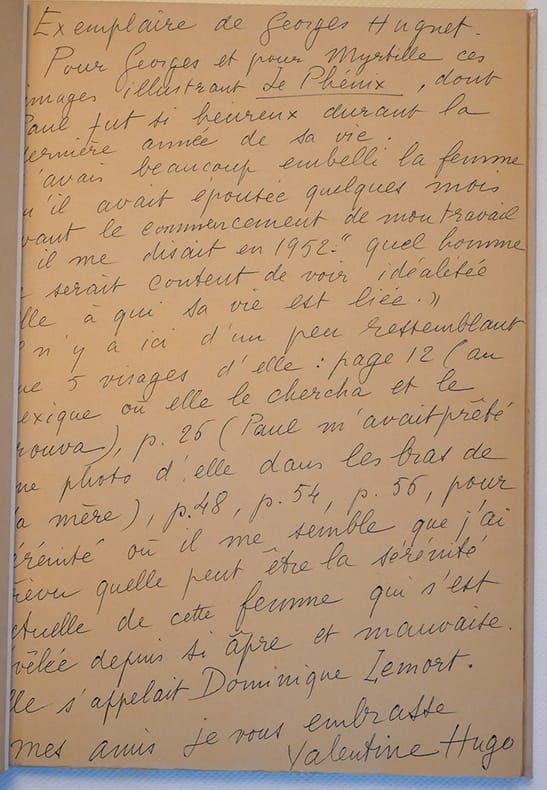 Exemplaire de Georges Hugnet.
Pour Georges et pour Myrtille ces
images illustrant Le Phénix, dont
Paul fut si heureux durant la
ernière année de sa vie.
'avais beaucoup embelli la femme
u'il avait épousée quelques mois
vant le commencement de mon travail
il me disait en 1952: " quel homme
serait content de voir idéalisée
lle à qui sa vie est liée. »
n'y a ici d'un peu ressemblant
ue 5 visages d'elle : page 12 (au
exique où elle le chercha et le
rouva), p. 25 (Paul m'avait prêté
ne photo d'elle dans les bras de
a mère), p. 48, p. 54, p. 56, pour
érénité où il me semble que j'ai
révu quelle peut être la sérénité
ctuelle de cette femme qui s'est
vêlée depuis si âpre et mauvaise.
lle s'appelait Dominique Lemort.
mes amis je vous embrasse
Valentine Hugo